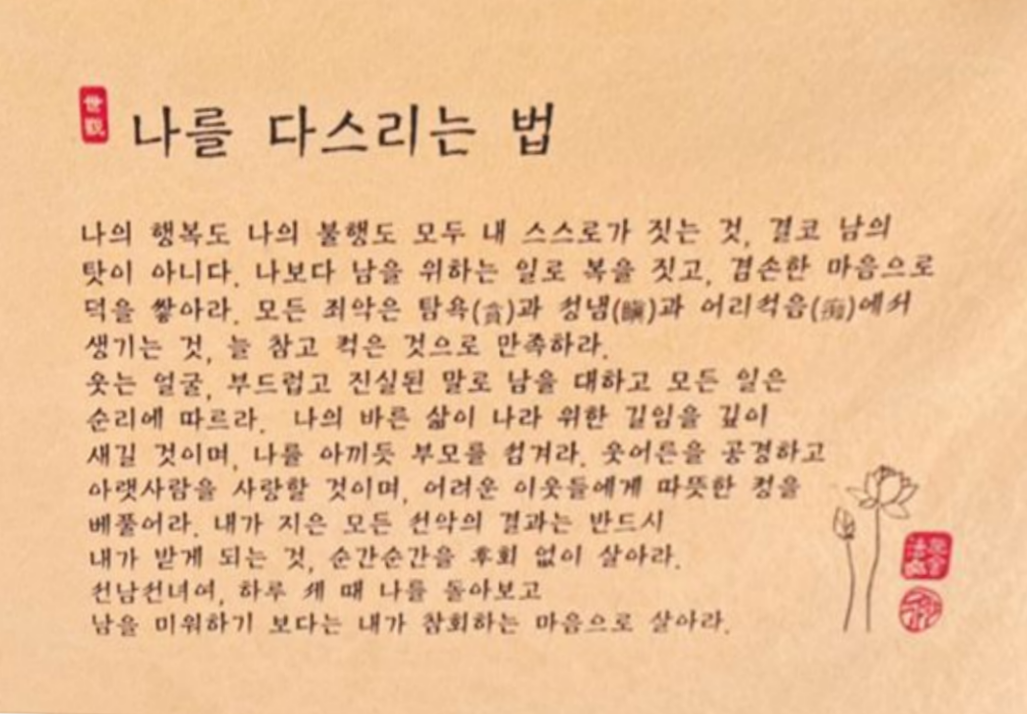 世
觀
나를 다스리는 법
나의 행복도 나의 불행도 모두 내 스스로가 짓는 것, 결코 남의
탓이 아니다. 나보다 남을 위하는 일로 복을 짓고, 겸손한 마음으로
덕을 쌓아라. 모든 죄악은 탐욕(貪)과 성냄(瞋)과 어리석음(痴)에서
생기는 것, 늘 참고 적은 것으로 만족하라.
웃는 얼굴, 부드럽고 진실된 말로 남을 대하고 모든 일은
순리에 따르라. 나의 바른 삶이 나라 위한 길임을 깊이
새길 것이며, 나를 아끼듯 부모를 섬겨라. 웃어른을 공경하고
아랫사람을 사랑할 것이며, 어려운 이웃들에게 따뜻한 정을
베풀어라. 내가 지은 모든 선악의 결과는 반드시
내가 받게 되는 것, 순간순간을 후회 없이 살아라.
선남선녀여, 하루 세 때 나를 돌아보고
남을 미워하기 보다는 내가 참회하는 마음으로 살아라.